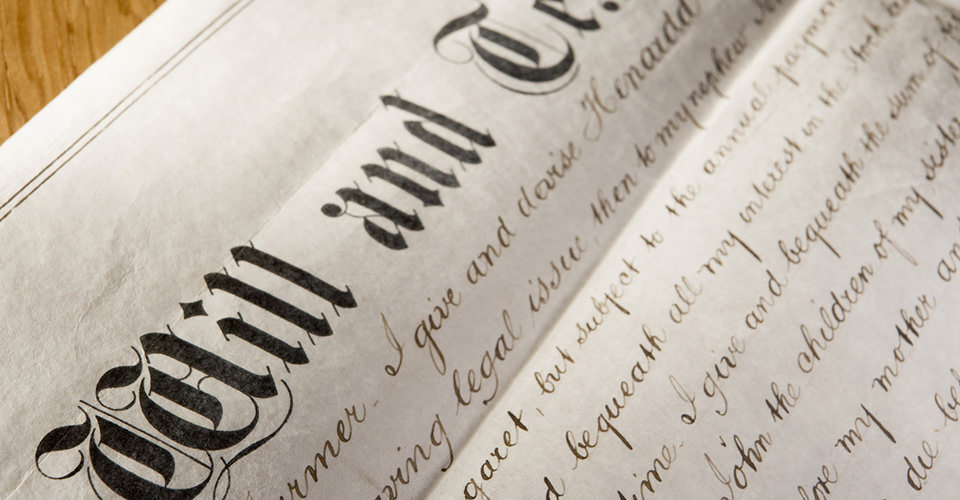 Will and Te
urmer. I give and devise
ving legal issue, then to my nephew
garet, but subject to the annual payment
d bequeath all my interest in the stock
I give and bequeath the sum of
John the children of my sister
my mother an
die be